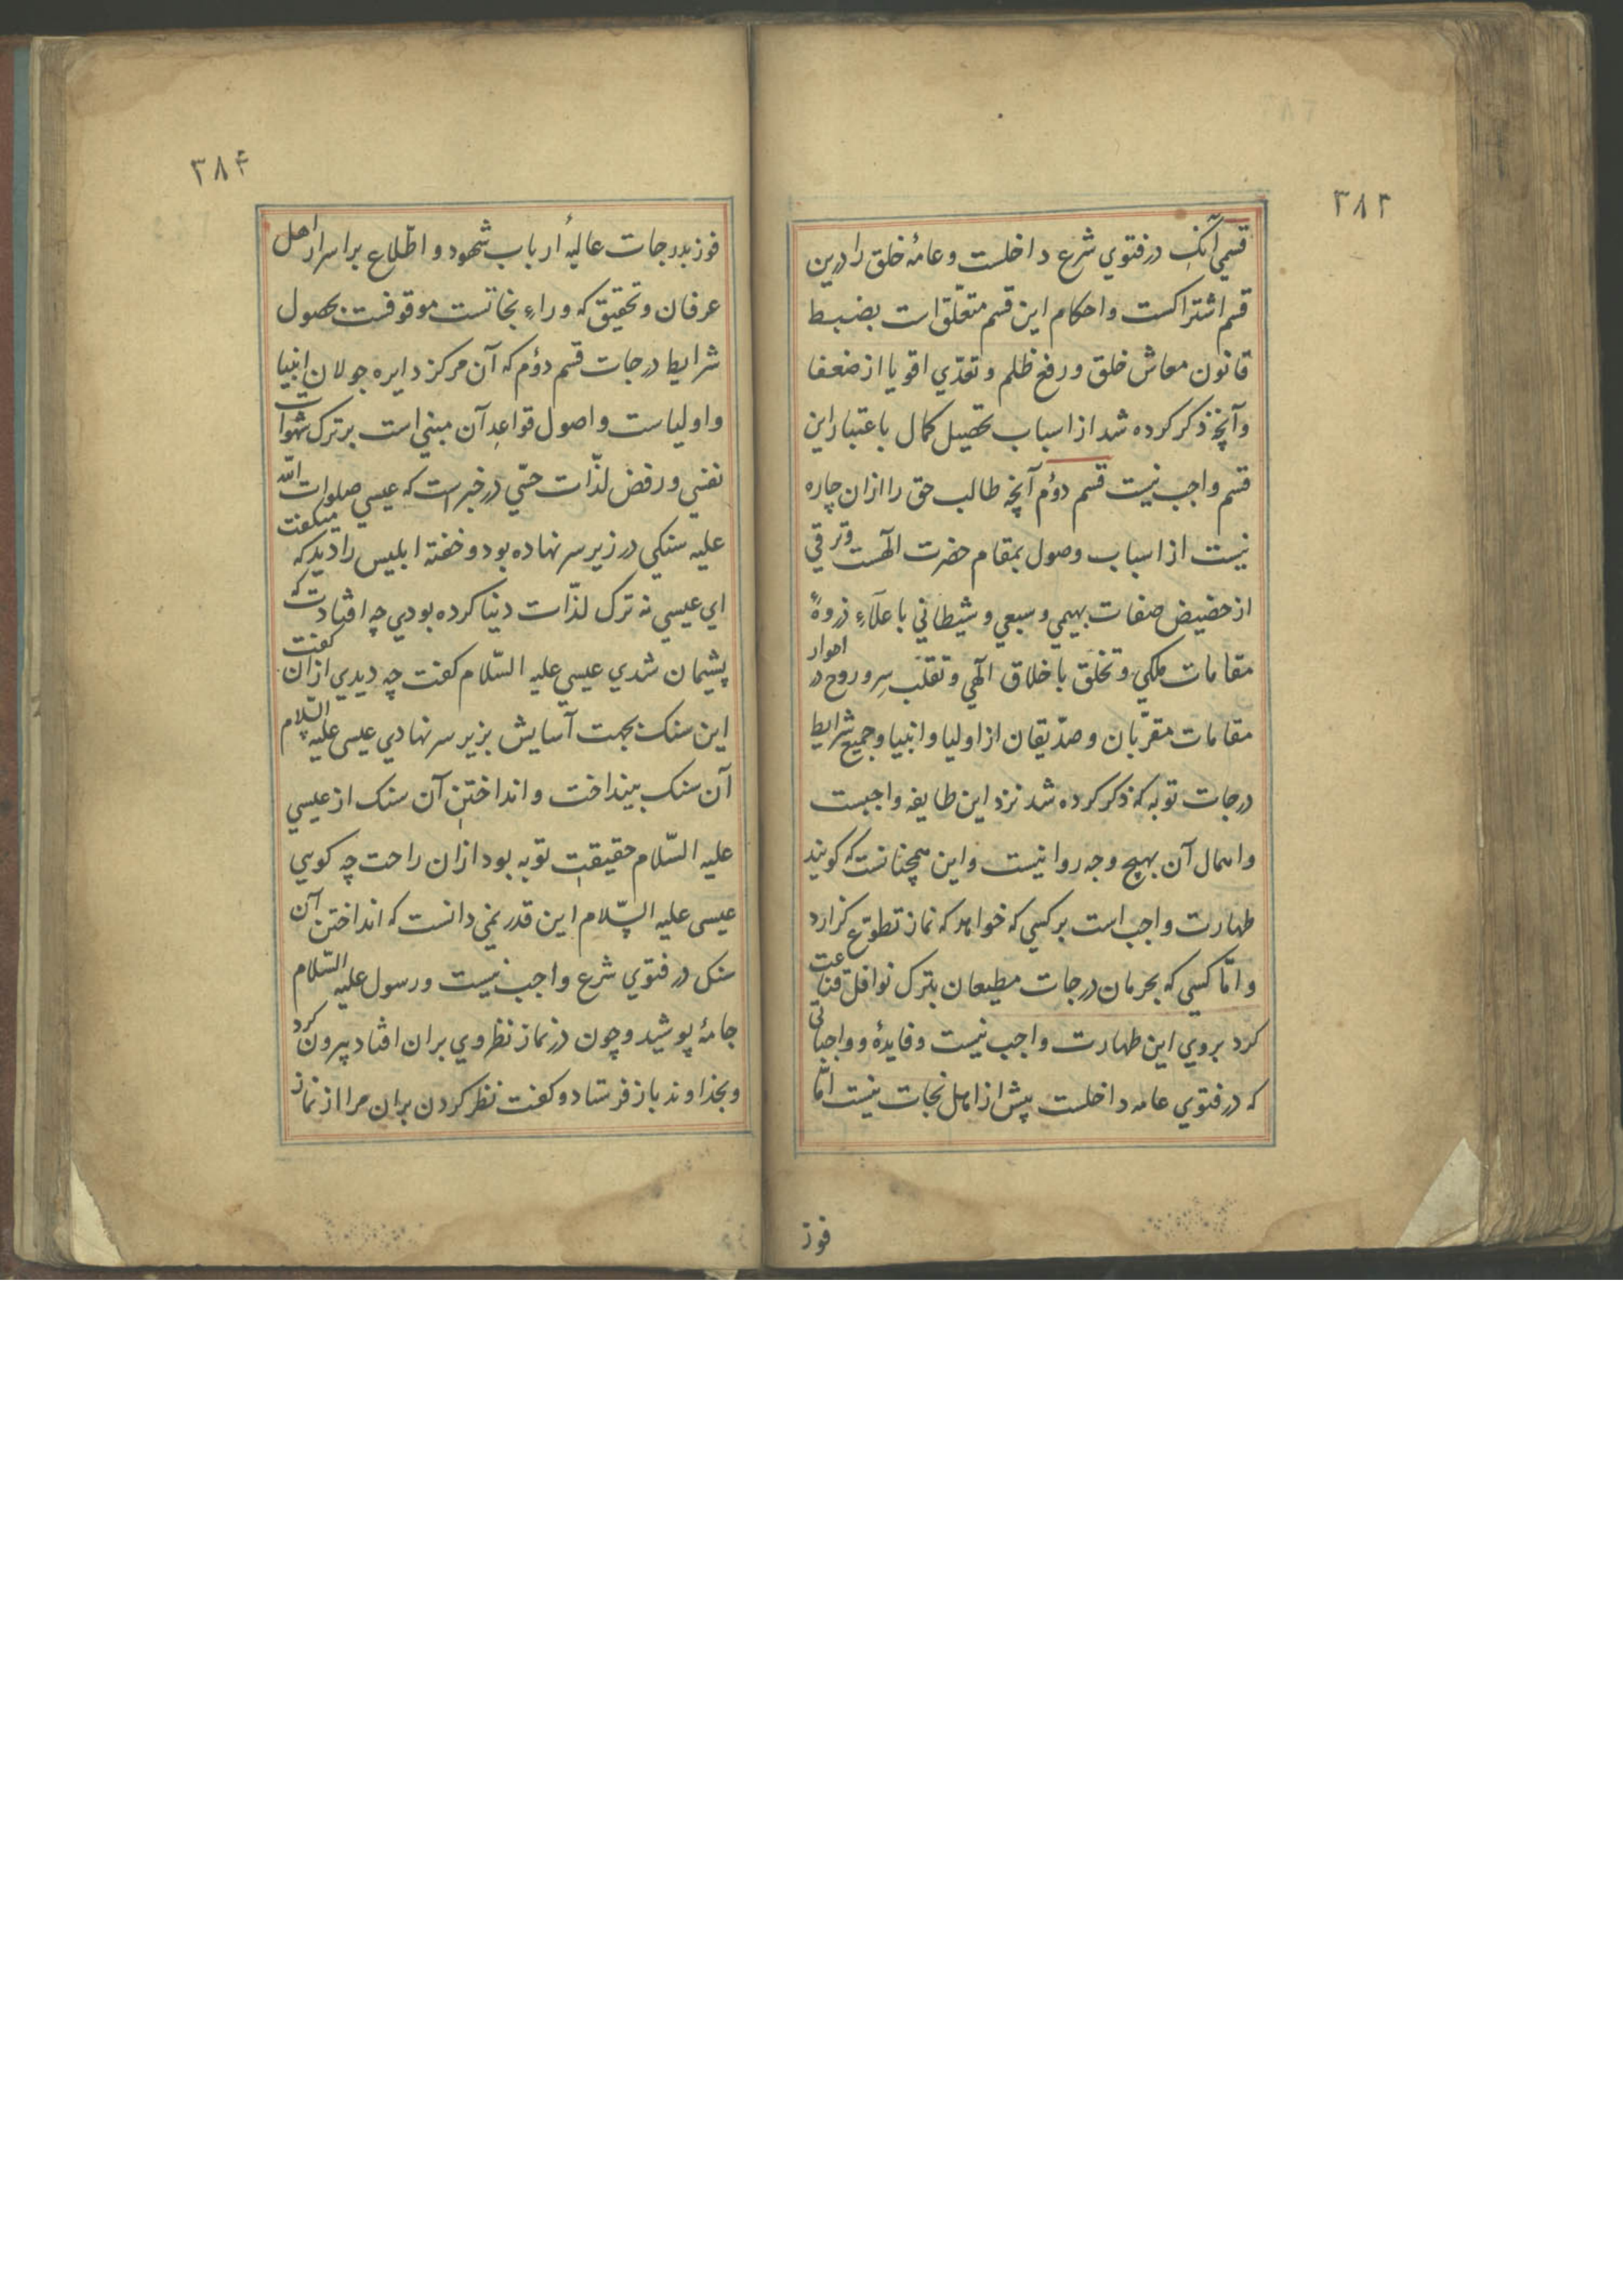 ۳۸۳
قسمي آنك در فتوي شرع داخلست و عامهٔ خلق را درين
قسم اشتراكست و احكام اين قسم متعلّق است بضبط
قانون معاش خلق و رفع ظلم و تعدّي اقويا از ضعفا
و آنچه ذكر كرده شد از اسباب تحصيل كمال باعتبار اين
قسم واجب نيست قسم دوّم آنچه طالب حق را ازان چاره
نيست از اسباب وصول بمقام حضرت الٓهست و ترقي
از حضيض صفات بهيمي و سبعي و شيطاني باعلآءِ ذروهٔ
مقامات ملكي و تخلّق باخلاق الٓهي و تقلّب سِر و روح در اطوار
مقامات مقرّبان و صدّيقان از اوليا و انبيا و جميع شرايط
درجات توبه كه ذكر كرده شد نزد اين طايفه واجبست
و اهمال آن بهيچ وجه روا نيست و اين همچنانست كه كويند
طهارت واجب است بر كسي كه خواهد كه نماز تطوّع كزارد
و امّا كسي كه بحرمان درجات مطيعان بترك نوافل قناعت
كرد بروي اين طهارت واجب نيست و فايدهٔ و واجباتي
كه در فتوي عامه داخلست پيش از اهل نجات نيست امّا
فوز
۳۸۴
فوز بدرجات عاليهٔ ارباب شهود و اطّلاع بر اسرار اهل
عرفان و تحقيق كه وراءِ نجاتست موقوفست بحصول
شرايط درجات قسم دوّم كه آن مركز دايره جولان انبيا
و اولياست و اصول قواعدِ آن مبني است بر ترك شهوات
نفسي و رفض لذّات حسّي در خبر است كه عيسي صلوات الله
عليه سنكي در زير سر نهاده بود و خفته ابليس را ديد كه ميكفت
اي عيسي نه ترك لذّات دنيا كرده بودي چه افتادت كه
پشيمان شدي عيسي عليه السّلام كفت چه ديدي ازان كفت
اين سنك بجهت آسايش بزير سر نهادي عيسي عليه السّلام
آن سنك بينداخت و انداختنِ آن سنك از عيسي
عليه السّلام حقيقتِ توبه بود ازان راحت چه كويي
عيسي عليه السّلام اين قدر نمي دانست كه انداختن آن
سنك در فتوي شرع واجب نيست و رسول عليه السّلام
جامهٔ پوشيد و چون در نماز نظر وي بران افتاد بيرون كرد
و بخداوند باز فرستاد و كفت نظر كردن بران مرا از نماز